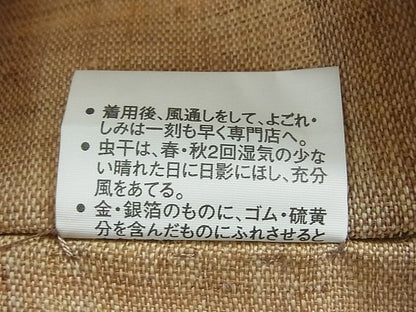 ● 着用後、風通しをして、よごれ・
しみは一刻も早く専門店へ。
● 虫干は、春・秋2回湿気の少な
い晴れた日に日影にほし、充分
風をあてる。
● 金・銀箔のものに、ゴム・硫黄
分を含んだものにふれさせると